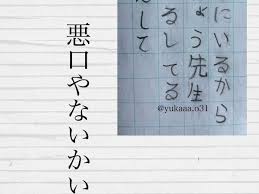 にいるから
ょう先生
るしてる
して
@yukaaa.o31
悪口やないかい